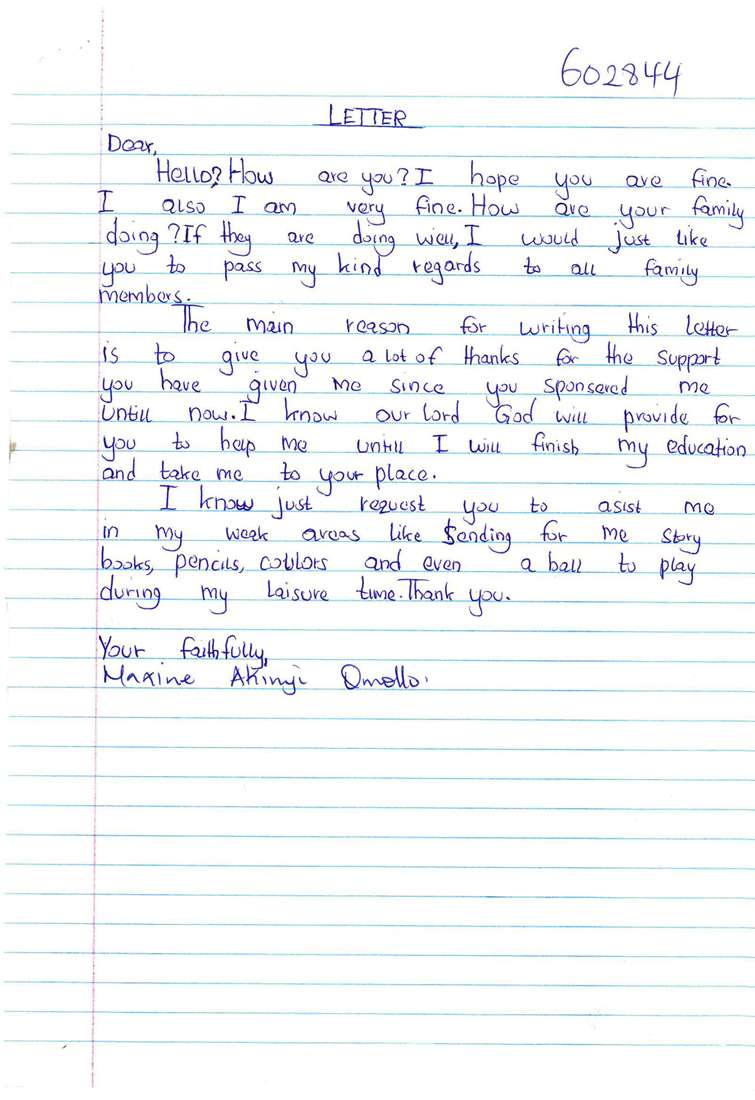 602844
LETTER
Dear,
Hello? How are you? I hope you are fine.
I also I am very fine. How are your family
doing? If they are doing well, I would just like
you to pass my kind regards to all family
members.
The main reason for writing this letter
is to give you a lot of thanks for the support
you have given me since you sponsered me
untill now. I know our lord God will provide for
you to help me untill I will finish my education
and take me to your place.
I know just request you to asist me
in my weak areas like sending for me story
books, pencils, collors and even a ball to play
during my laisure time. Thank you.
Your faithfully,
Maxine Akinyi Omollo.